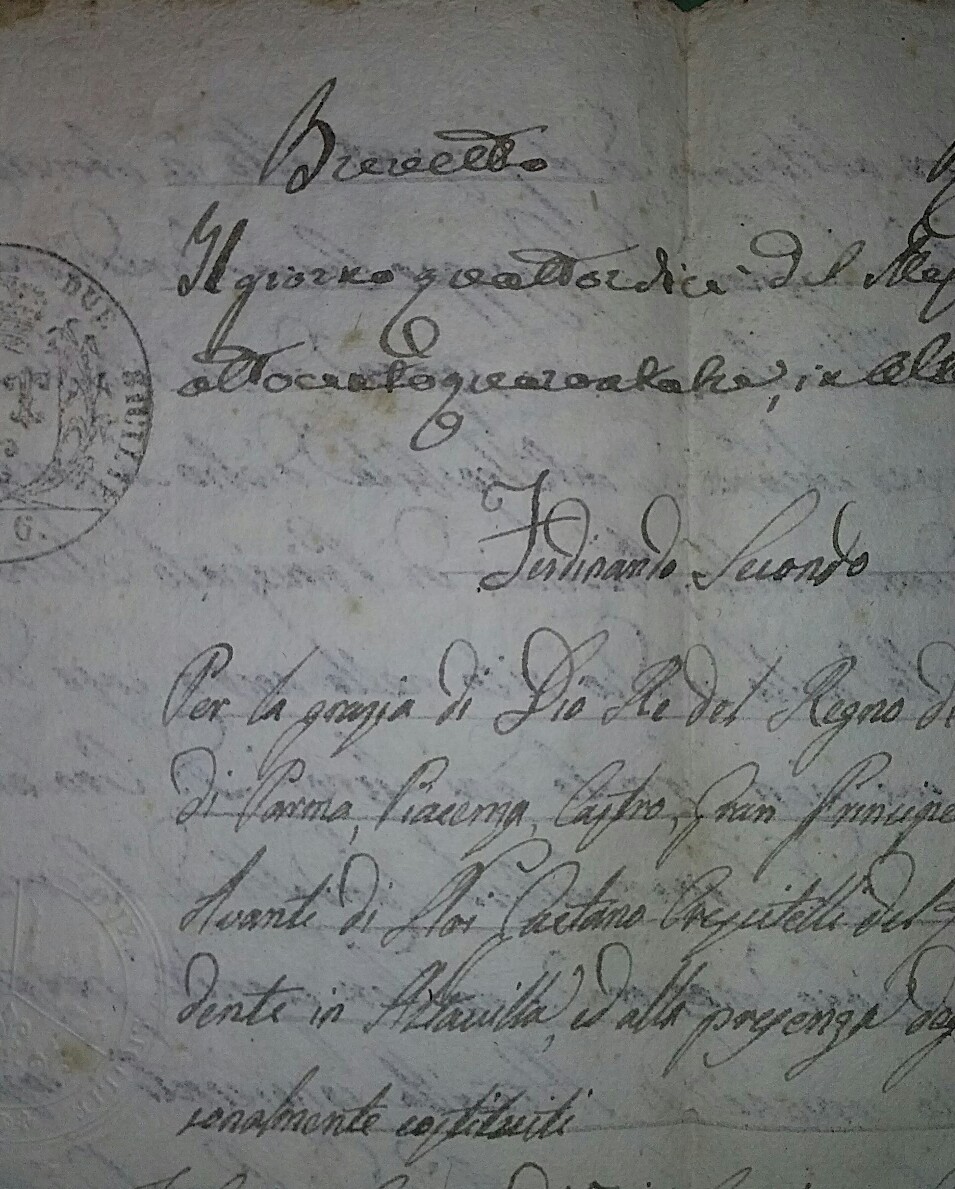 Brevetto
Il giorno quattordici del
ottocentoquarantatre, in
Ferdinando Secondo
Per la grazia di Dio Re del Regno
di Parma, Piacenza, Castro, Gran Principe
Avanti di Noi Gaetano Crescitelli del
dente in Altavilla, ed alla presenza
sonalmente costituiti
DUE
SICILIE
G.